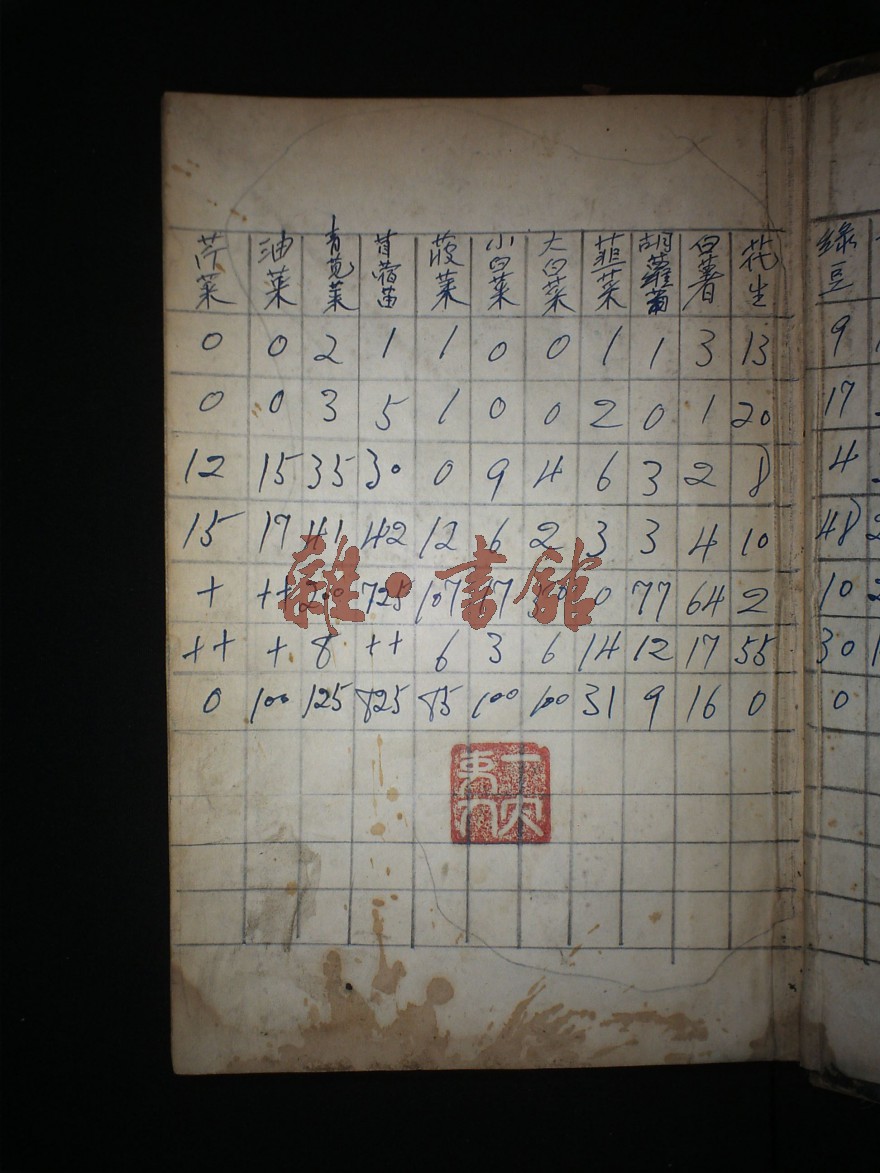 芹菜 油菜 青莧菜 苜蓿苗 菠菜 小白菜 大白菜 韮菜 胡蘿蔔 白薯 花生 綠豆
0 0 2 1 1 0 0 1 1 3 13 9
0 0 3 5 1 0 0 2 0 1 20 17
12 15 35 30 0 9 4 6 3 2 8 4
15 17 41 42 12 6 2 3 3 4 10 48
+ ++ 200 725 107 0 77 64 2 10
++ + 8 ++ 6 3 6 14 12 17 55 30
0 100 125 825 85 100 100 31 9 16 0 0
雜·書館